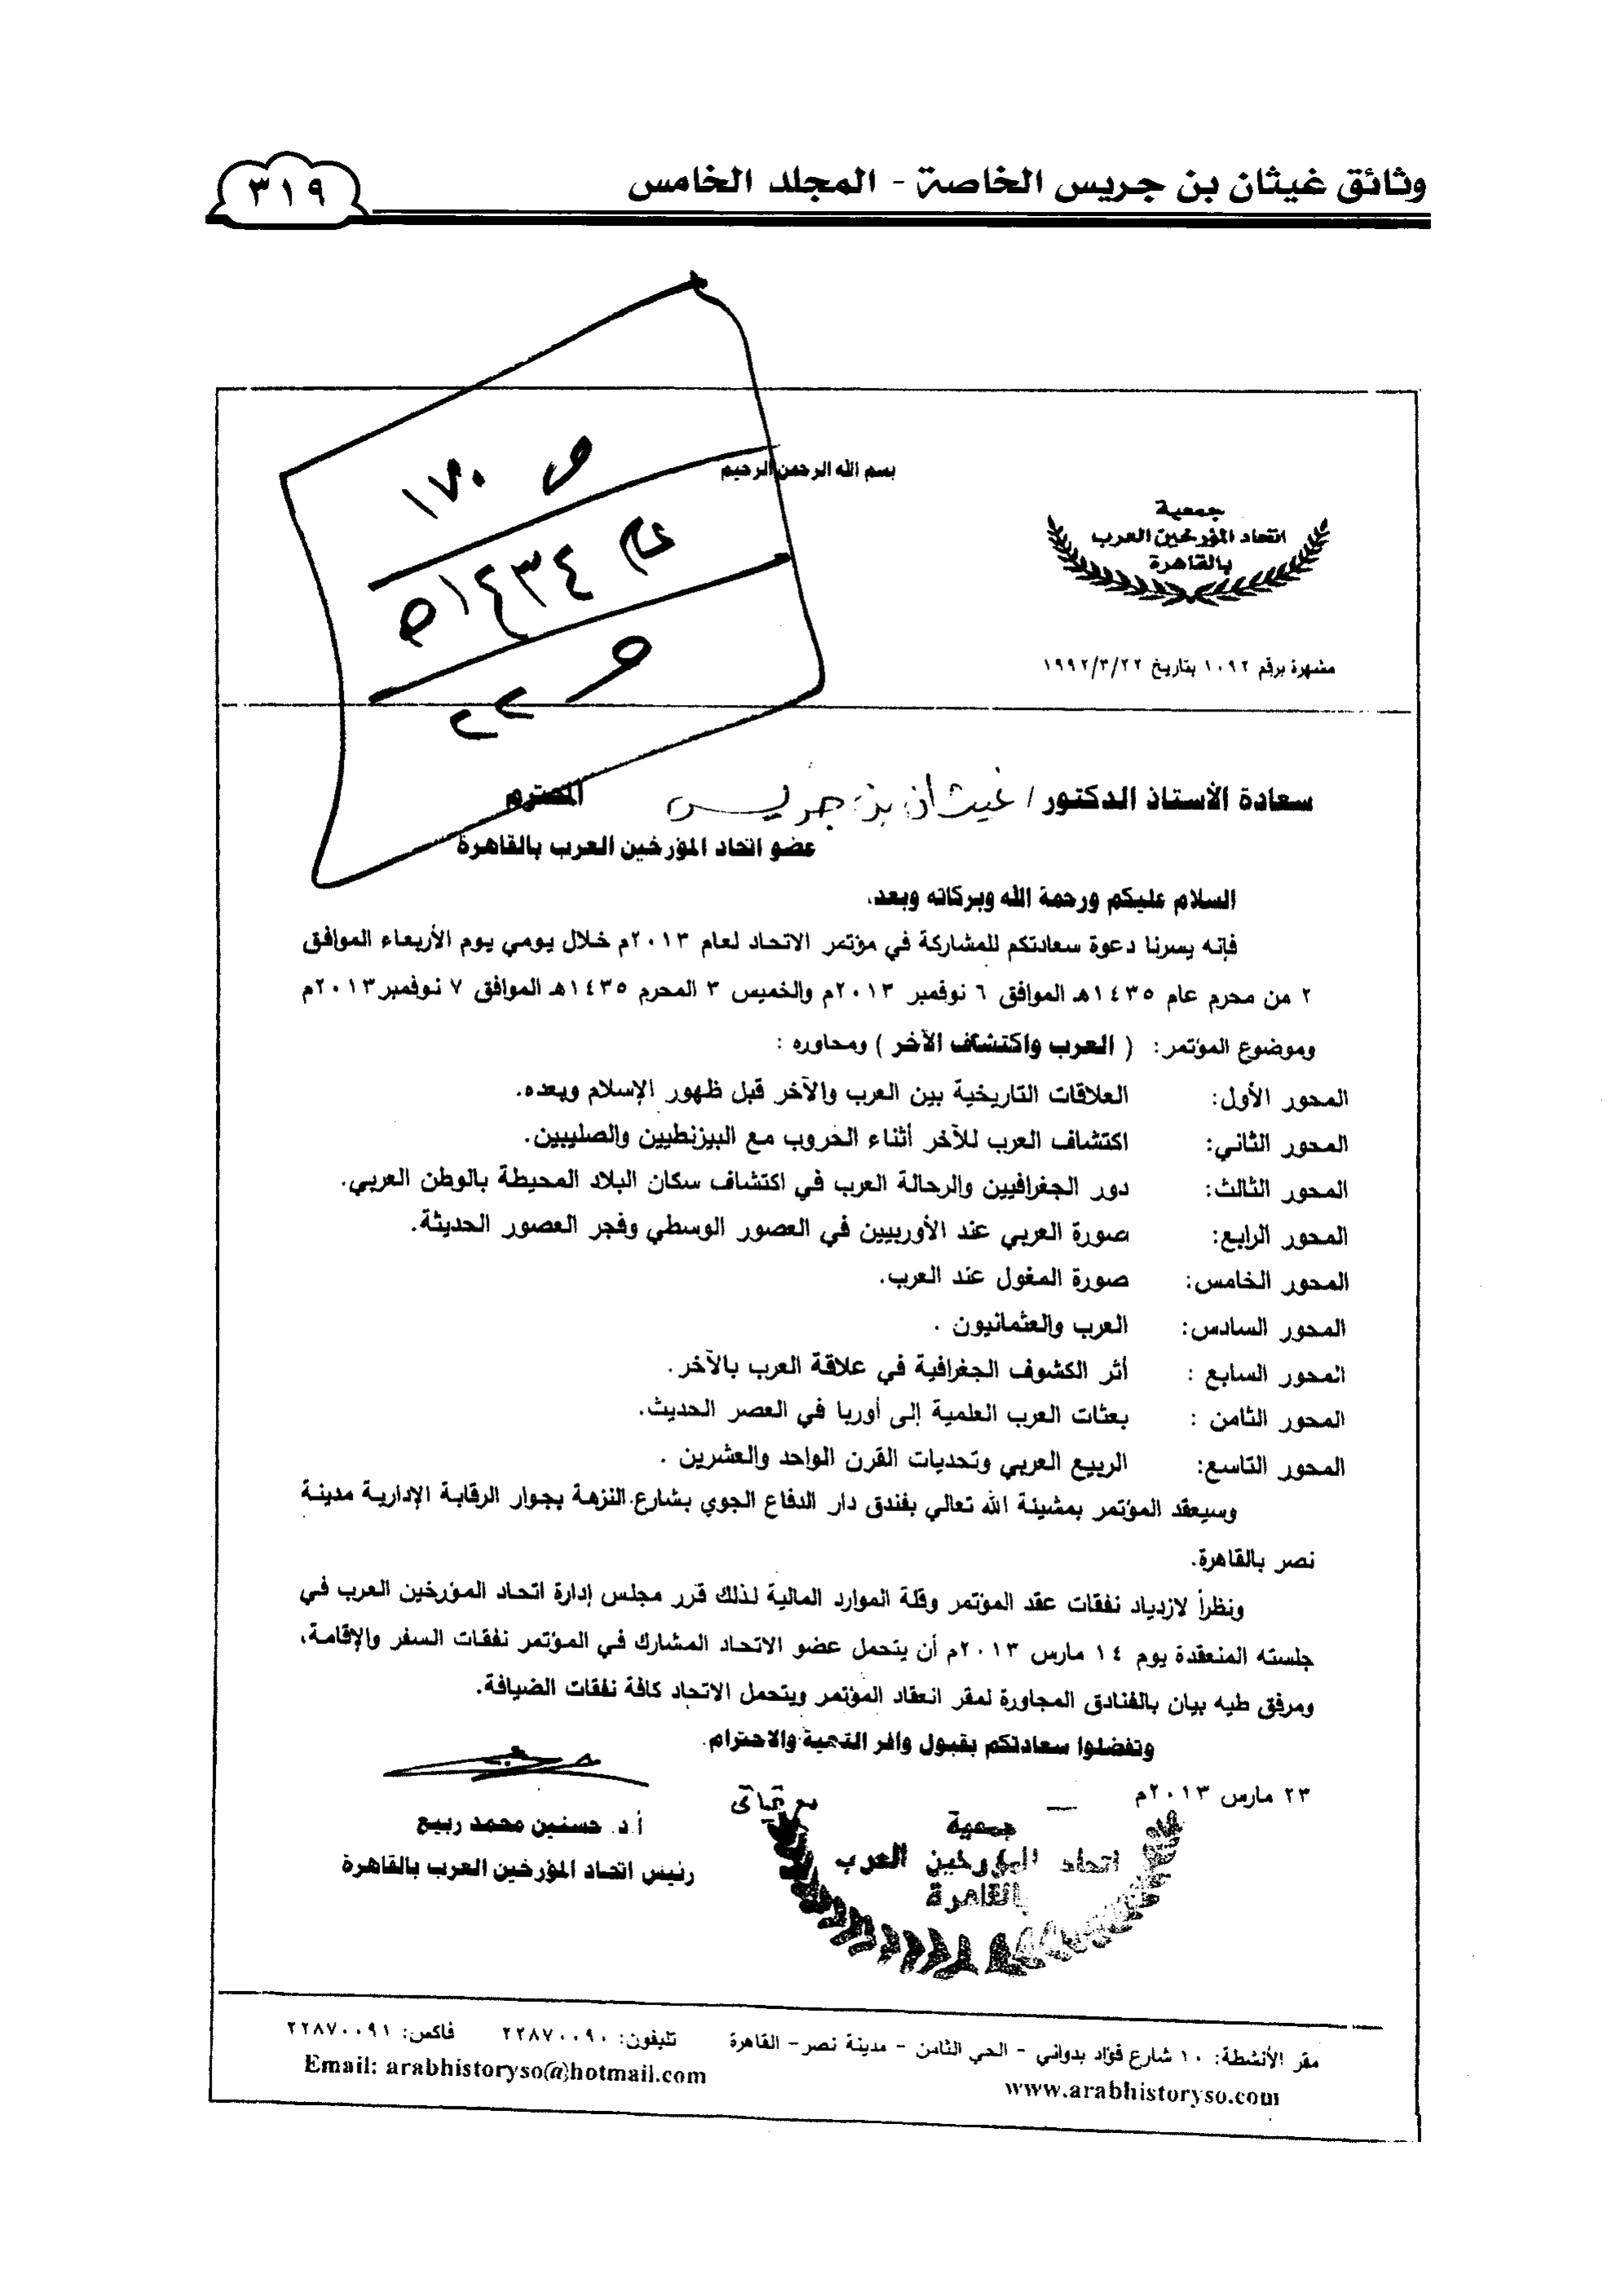 وثائق غيثان بن جريس الخاصة - المجلد الخامس
٣١٩
ص ١٧٠
عام ١٤٣٤ه
بسم الله الرحمن الرحيم
جمعية
اتحاد المؤرخين العرب
بالقاهرة
مشهرة برقم ١٠٩٢ بتاريخ ١٩٩٢/٣/٢٢
سعادة الأستاذ الدكتور / غيثان بن جريس المحترم
عضو اتحاد المؤرخين العرب بالقاهرة
السلام عليكم ورحمة الله وبركاته وبعد،
فإنه يسرنا دعوة سعادتكم للمشاركة في مؤتمر الاتحاد لعام ٢٠١٣م خلال يومي يوم الأربعاء الموافق
٢ من محرم عام ١٤٣٥هـ الموافق ٦ نوفمبر ٢٠١٣م والخميس ٣ المحرم ١٤٣٥هـ الموافق ٧ نوفمبر٢٠١٣م
وموضوع المؤتمر: ( العرب واكتشاف الآخر ) ومحاوره :
المحور الأول: العلاقات التاريخية بين العرب والآخر قبل ظهور الإسلام وبعده.
المحور الثاني: اكتشاف العرب للآخر أثناء الحروب مع البيزنطيين والصليبين.
المحور الثالث: دور الجغرافيين والرحالة العرب في اكتشاف سكان البلاد المحيطة بالوطن العربي.
المحور الرابع: صورة العربي عند الأوربيين في العصور الوسطي وفجر العصور الحديثة.
المحور الخامس: صورة المغول عند العرب.
المحور السادس: العرب والعثمانيون .
المحور السابع : أثر الكشوف الجغرافية في علاقة العرب بالآخر.
المحور الثامن : بعثات العرب العلمية إلى أوربا في العصر الحديث.
المحور التاسع: الربيع العربي وتحديات القرن الواحد والعشرين .
وسيعقد المؤتمر بمشيئة الله تعالي بفندق دار الدفاع الجوي بشارع النزهة بجوار الرقابة الإدارية مدينة
نصر بالقاهرة.
ونظراً لازدياد نفقات عقد المؤتمر وقلة الموارد المالية لذلك قرر مجلس إدارة اتحاد المؤرخين العرب في
جلسته المنعقدة يوم ١٤ مارس ٢٠١٣م أن يتحمل عضو الاتحاد المشارك في المؤتمر نفقات السفر والإقامة،
ومرفق طيه بيان بالفنادق المجاورة لمقر انعقاد المؤتمر ويتحمل الاتحاد كافة نفقات الضيافة.
وتفضلوا سعادتكم بقبول وافر التحية والاحترام.
٢٣ مارس ٢٠١٣م
جمعية
اتحاد المؤرخين العرب
بالقاهرة
أ.د. حسنين محمد ربيع
رئيس اتحاد المؤرخين العرب بالقاهرة
مقر الأنشطة: ١٠ شارع فؤاد بدواني - الحي الثامن - مدينة نصر- القاهرة تليفون: ٢٢٨٧٠٠٩٠ فاكس: ٢٢٨٧٠٠٩١
www.arabhistoryso.com Email: arabhistoryso@hotmail.com